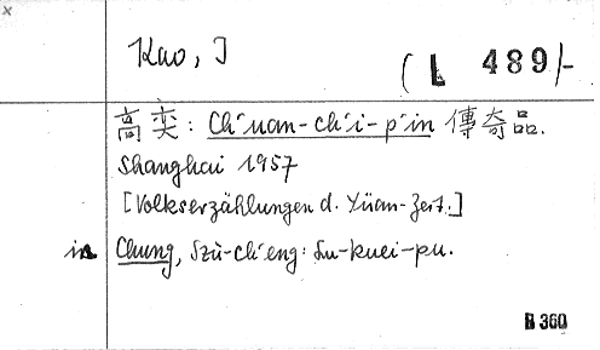 x
Kao, I
(L 489/-
高奕: Ch'uan-ch'i-p'in 傳奇品.
Shanghai 1957
[Volkserzählungen d. Yüan-Zeit.]
in Chung, Szŭ-ch'eng: Lu-kuei-pu.
B 360